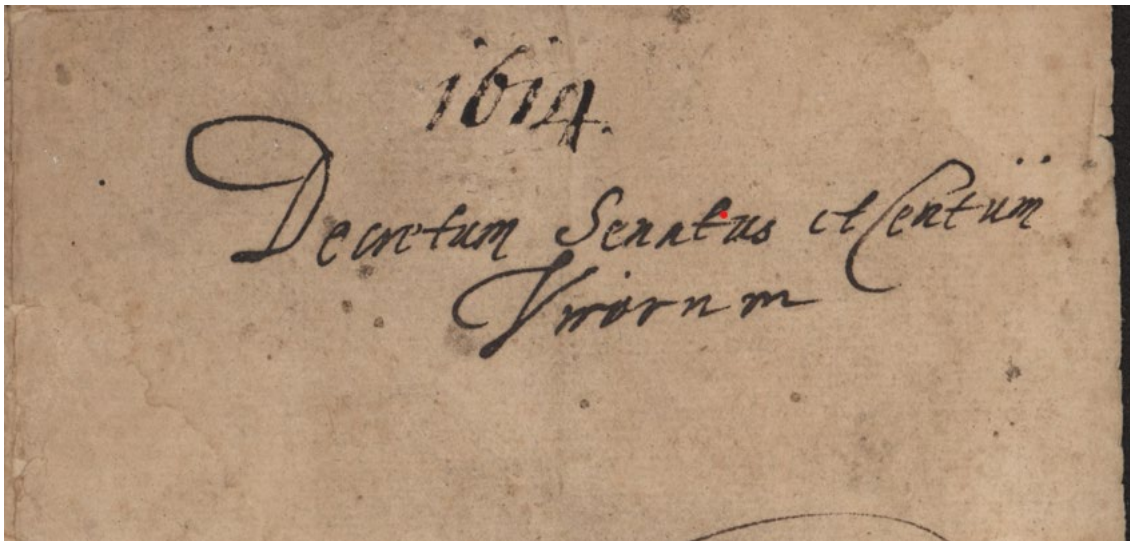 1614.
Decretum Senatus et Centum
Virorum